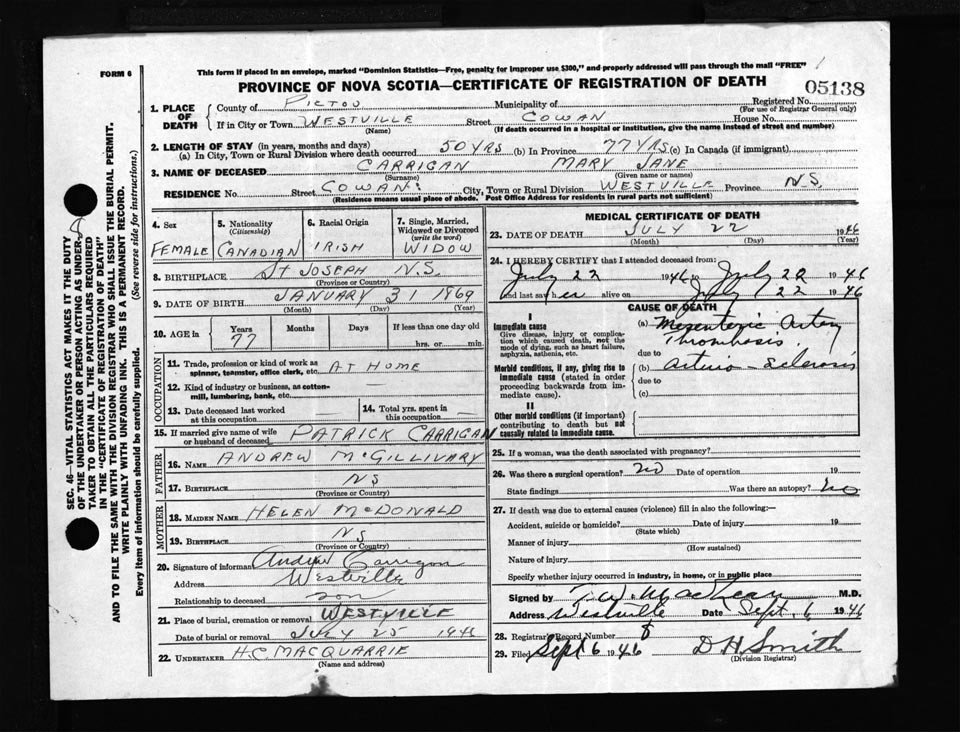 FORM 6
This form if placed in an envelope, marked "Dominion Statistics—Free, penalty for improper use $300," and properly addressed will pass through the mail "FREE"
PROVINCE OF NOVA SCOTIA—CERTIFICATE OF REGISTRATION OF DEATH
05138
1. PLACE OF DEATH
County of PICTOU Municipality of Registered No.
(For use of Registrar General only)
If in City or Town WESTVILLE Street COWAN House No.
(Name) (If death occurred in a hospital or institution, give the name instead of street and number)
2. LENGTH OF STAY (in years, months and days)
(a) In City, Town or Rural Division where death occurred 50 YRS (b) In Province 77 YRS (c) In Canada (if immigrant)
3. NAME OF DECEASED CARRIGAN MARY JANE
(Surname) (Given name or names)
RESIDENCE No. Street COWAN City, Town or Rural Division WESTVILLE Province N.S.
(Residence means usual place of abode. Post Office Address for residents in rural parts not sufficient)
4. Sex FEMALE
5. Nationality (Citizenship) CANADIAN
6. Racial Origin IRISH
7. Single, Married, Widowed or Divorced (write the word) WIDOW
8. BIRTHPLACE St JOSEPH N.S.
(Province or Country)
9. DATE OF BIRTH JANUARY 31 1869
(Month) (Day) (Year)
10. AGE in Years 77 Months Days If less than one day old
hrs. or min.
OCCUPATION
11. Trade, profession or kind of work as spinner, teamster, office clerk, etc. AT HOME
12. Kind of industry or business, as cotton-mill, lumbering, bank, etc. —
13. Date deceased last worked at this occupation
14. Total yrs. spent in this occupation —
15. If married give name of wife or husband of deceased PATRICK CARRIGAN
FATHER
16. NAME ANDREW McGILLIVARY
17. BIRTHPLACE NS
(Province or Country)
MOTHER
18. MAIDEN NAME HELEN McDONALD
19. BIRTHPLACE NS
(Province or Country)
20. Signature of informant Andrew Carrigan
Address Westville
Relationship to deceased son
21. Place of burial, cremation or removal WESTVILLE
Date of burial or removal JULY 25 1946
22. UNDERTAKER H.C. MACQUARRIE
(Name and address)
MEDICAL CERTIFICATE OF DEATH
23. DATE OF DEATH JULY 22 1946
(Month) (Day) (Year)
24. I HEREBY CERTIFY that I attended deceased from:
July 22 1946 to July 22 1946
and last saw her alive on July 22 1946
CAUSE OF DEATH
I
Immediate cause
Give disease, injury or complication which caused death, not the mode of dying, such as heart failure, asphyxia, asthenia, etc.
(a) Mesenteric Artery Thrombosis
due to
Morbid conditions, if any, giving rise to immediate cause (stated in order proceeding backwards from immediate cause).
(b) Arterio-Sclerosis
due to
(c)
II
Other morbid conditions (if important) contributing to death but not causally related to immediate cause.
25. If a woman, was the death associated with pregnancy?
26. Was there a surgical operation? no Date of operation 19
State findings Was there an autopsy? no
27. If death was due to external causes (violence) fill in also the following:—
Accident, suicide or homicide? Date of injury 19
(State which)
Manner of injury
(How sustained)
Nature of injury
Specify whether injury occurred in industry, in home, or in public place
Signed by M.D.
Address Westville Date Sept. 6 1946
28. Registrar's Record Number 8
29. Filed Sept 6 1946 D H Smith
(Division Registrar)
SEC. 46—VITAL STATISTICS ACT MAKES IT THE DUTY
OF THE UNDERTAKER OR PERSON ACTING AS UNDER-
TAKER TO OBTAIN ALL THE PARTICULARS REQUIRED
IN THE "CERTIFICATE OF REGISTRATION OF DEATH"
AND TO FILE THE SAME WITH THE DIVISION REGISTRAR WHO SHALL ISSUE THE BURIAL PERMIT.
WRITE PLAINLY WITH UNFADING INK. THIS IS A PERMANENT RECORD.
Every item of information should be carefully supplied. (See reverse side for instructions.)